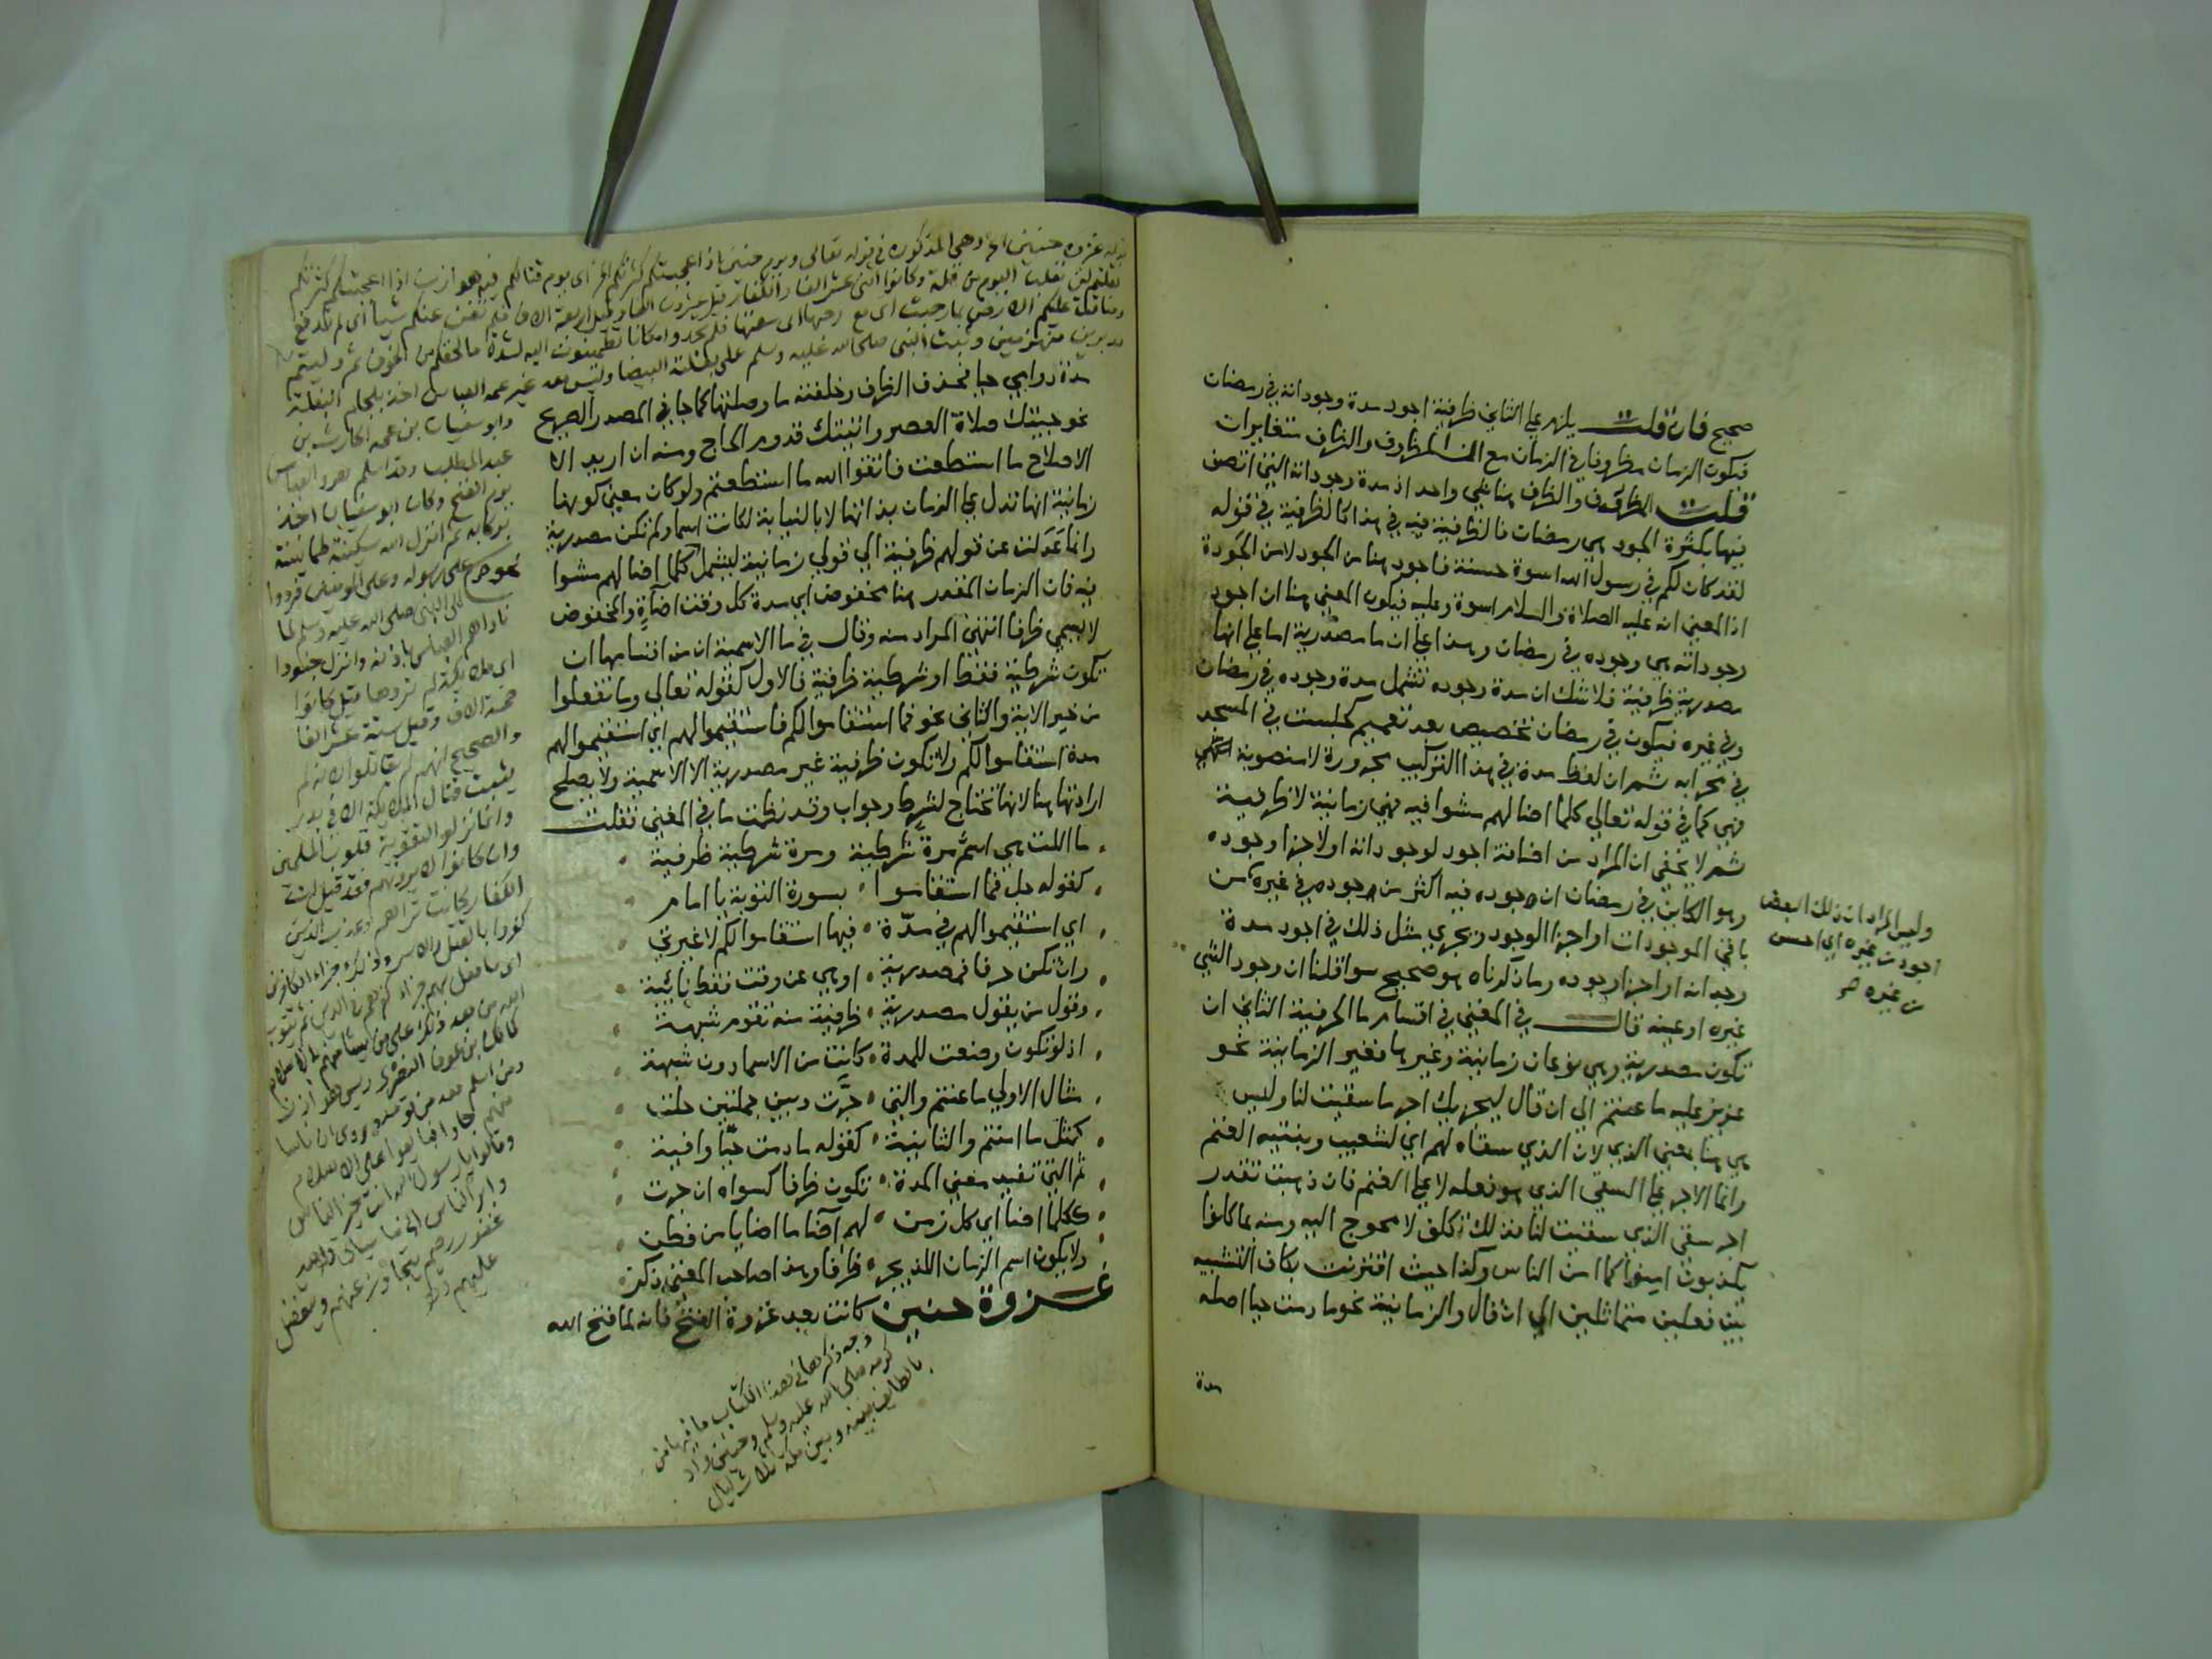 صحيح فان قلت يلزم علي الثاني ظرفية اجود مدة وجودانه في رمضان
فيكون الزمان مظروفا في الزمان مع ان المظروف والظرف متغايران
قلت المظروف والظرف هنا شي واحد اذ مدة وجودانه التي اتصف
فيها بكثرة الجود هي رمضان فالظرفية فيه في هذا كالظرفية في قوله
لقد كان لكم في رسول الله اسوة حسنة فاجود هنا من الجود لا من الجودة
اذ المعني انه عليه الصلاة والسلام اسوة وعليه فيكون المعني هنا ان اجود
وجوداته هي وجوده في رمضان وهذا علي ان ما مصدرية اما علي انها
مصدرية ظرفية فلا شك ان مدة وجوده تشمل مدة وجوده في رمضان
وفي غيره فيكون في رمضان تخصيص بعد تعميم كجلست في المسجد
في محرابه ثم ان لفظ مدة في هذا التركيب مجرورة لا منصوبة انتهي
فهي كما في قوله تعالي كلما اضا لهم مشوا فيه فهي زمانية لا ظرفية
ثم لا يخفي ان المراد من اضافة اجود لوجودانه او لاجزا وجوده
وهو الكاين في رمضان ان وجوده فيه اكثر من وجوده في غيره من
باقي الموجودات او اجزا الوجود ويجري مثل ذلك في اجود مدة
وجدانه او اجزا وجوده وما ذكرناه هو صحيح سوا قلنا ان وجود الشي
غيره او عينه قال في المغني في اقسام ما الحرفية الثاني ان
تكون مصدرية وهي نوعان زمانية وغيرها فغير الزمانية نحو
عزيز عليه ما عنتم الي ان قال ليجزيك اجر ما سقيت لنا وليس
هي هنا بمعني الذي لان الذي سقاه لهم اي لشعيب وبنتيه الغنم
وانما الاجر علي السقي الذي هو فعله لا علي الغنم فان ذهبت تقدر
اجر سقي الذي سقيت لنا فذلك تكلف لا محوج اليه ومنه بما كانوا
يكذبون امنوا كما امن الناس وكذا حيث اقترنت بكاف التشبيه
بين فعلين متماثلين الي ان قال والزمانية نحو ما دمت حيا اصله
مدة
وليس المراد ان ذلك البعض
اجود من غيره اي احسن
من غيره
قوله غزوة حنين الخ وهي المذكورة في قوله تعالى ويوم حنين اذ اعجبتكم كثرتكم اي يوم قتالكم فيه هوازن اذ اعجبتكم كثرتكم
فقلتم لن نغلب اليوم من قلة وكانوا اثنى عشر الفا والكفار قيل عشرون الفا وقيل اربعة الاف فلم تغن عنكم شيأ اى لم تدفع
وضاقت عليكم الارض بما رحبت اى مع رحبها اى سعتها فلم تجدوا مكانا تطمئنون اليه لشدة ما لحقكم من الخوف ثم وليتم
مدبرين منهزمين وثبت النبى صلى الله عليه وسلم على بغلته البيضا وليس معه غير عمه العباس اخذ بلجام البغلة
وابو سفيان بن عمه الحارث بن
عبد المطلب وقد اسلم هو والعباس
يوم الفتح وكان ابو سفيان اخذ
بركابه ثم انزل الله سكينته طمانينته
على رسوله وعلى المومنين فردوا
الى النبى صلى الله عليه وسلم لما
ناداهم العباس باذنه وانزل جنودا
اى ملايكة لم تروها قيل كانوا
خمسة الاف وقيل ستة عشر الفا
والصحيح انهم لم يقاتلوا لانه لم
يثبت قتال الملايكة الا فى بدر
وانما نزلوا لتقوية قلوب المسلمين
وان كانوا لا يرونهم فقد قيل ان
الكفار كانت تراهم وعذب الذين
كفروا بالقتل والاسر وذلك جزاء الكافرين
اى ما فعل بهم جزاء كفرهم في الدنيا ثم يتوب
الله من بعد ذلك على من يشا منهم بالاسلام
كمالك بن عوف النضري رييس هوازن
ومن اسلم معه من قومه وروى ان ناسا
منهم جاوا فبايعوا على الاسلام
وقالوا يا رسول الله انت خير الناس
وابر الناس
غفور رحيم يتجاوز عنهم ويتفضل
عليهم
مدة دوامي حيا فحذف الظرف وخلفته ما وصلتها كما جا في المصدر الصريح
نحو جيتك صلاة العصر واتيتك قدوم الحاج ومنه ان اريد الا
الاصلاح ما استطعت فاتقوا الله ما استطعتم ولو كان معني كونها
زمانية انها تدل علي الزمان بذاتها لا بالنيابة لكانت اسما ولم تكن مصدرية
وانما عدلت عن قولهم ظرفية الي قولي زمانية ليشمل نحو كلما اضا لهم مشوا
فيه فان الزمان المقدر هنا مخفوض اي مدة كل وقت اضاة والمخفوض
لا يسمي ظرفا انتهي المراد منه وقال في ما الاسمية ان من اقسامها ان
تكون شرطية فقط او شرطية ظرفية فالاول كقوله تعالي وما تفعلوا
من خير الاية والثاني نحو فما استقاموا لكم فاستقيموا لهم اي استقيموا لهم
مدة استقاموا لكم ولا تكون ظرفية غير مصدرية الا الاسمية ولا يصلح
ارادتها هنا لانها تحتاج لشرط وجواب وقد نظمت ما في المغني فقلت
ما اللت هي اسم مرة شرطية ومرة شرطية ظرفية
كقوله جل فما استقاموا بسورة التوبة يا امام
اي استقيموا لهم في مدة فيها استقاموا لكم لا غيرتي
وان تكن حرفا فمصدرية او هي عن وقت فقط نائبة
وقول من يقول مصدرية ظرفية منه تقوم شبهة
اذ لو تكون وضعت للمدة كانت من الاسما دون شبهة
مثال الاولي ما عنتم والتي جرت وبين جملتين حلت
كمثل ما امنتم والثانية كقوله ما دمت حيا وافية
ثم التي تفيد معني المدة تكون ظرفا لسواه ان جرت
ككلما اضا اي كل زمن لهم اضا ما اضا يا من فطن
ولا يكون اسم الزمان اللذ يجر ظرفا وهذا صاحب المغني ذكر
غزوة حنين كانت بعد غزوة الفتح فانه لما فتح الله
وجه ذكرها في هذا الكتاب ما فيها من
كرمه صلى الله عليه وسلم وحنين واد
بالطايف بينه وبين مكة ثلاث ليال